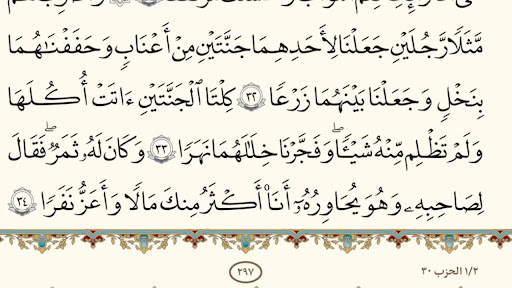 مَّثَلًا رَّجُلَيْنِ جَعَلْنَا لِأَحَدِهِمَا جَنَّتَيْنِ مِنْ أَعْنَٰبٍ وَحَفَفْنَٰهُمَا
بِنَخْلٍ وَجَعَلْنَا بَيْنَهُمَا زَرْعًا ٣٢ كِلْتَا ٱلْجَنَّتَيْنِ ءَاتَتْ أُكُلَهَا
وَلَمْ تَظْلِم مِّنْهُ شَيْـًٔا ۚ وَفَجَّرْنَا خِلَٰلَهُمَا نَهَرًا ٣٣ وَكَانَ لَهُۥ ثَمَرٌ فَقَالَ
لِصَٰحِبِهِۦ وَهُوَ يُحَاوِرُهُۥٓ أَنَا۠ أَكْثَرُ مِنكَ مَالًا وَأَعَزُّ نَفَرًا ٣٤
١/٢ الحزب ٣٠
٢٩٧